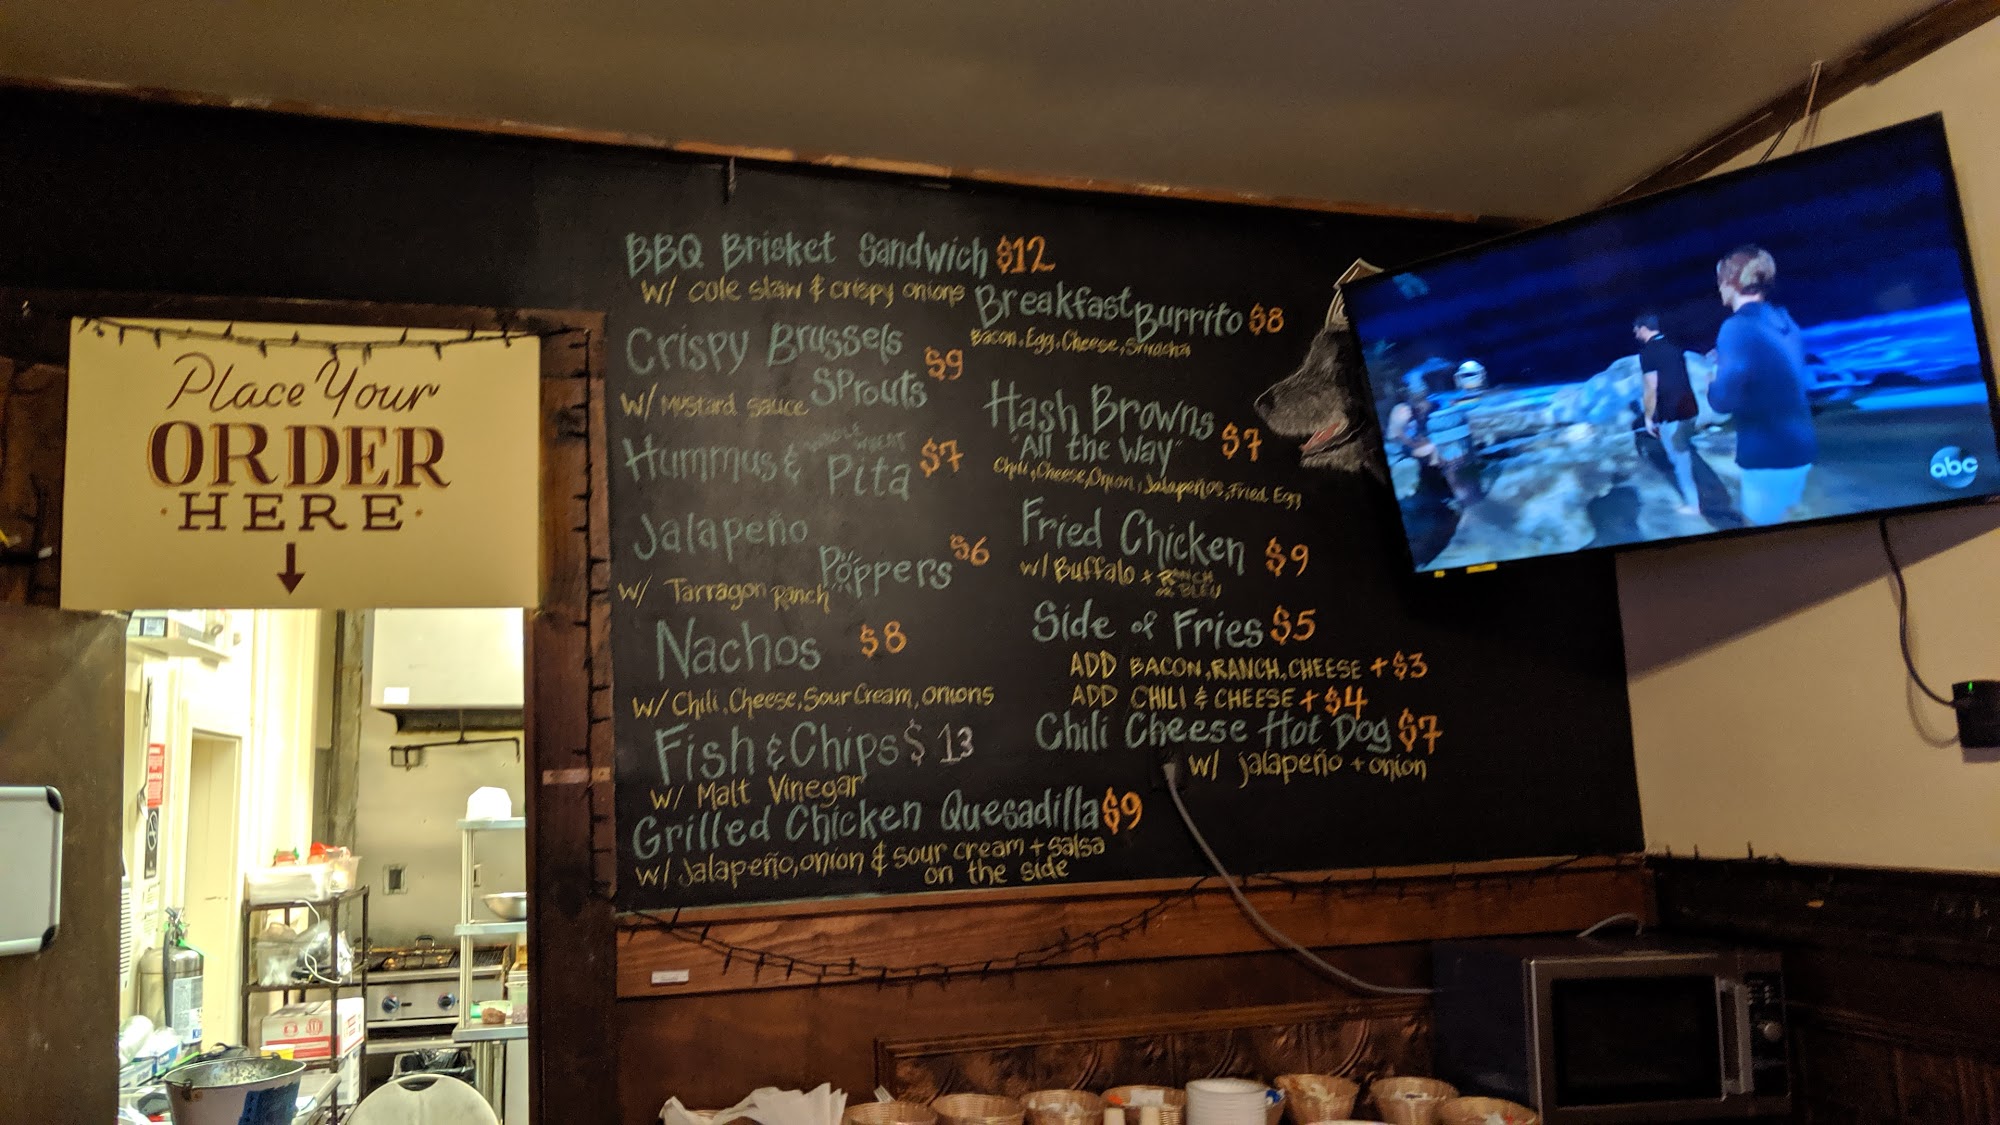 Place Your
ORDER
HERE
BBQ Brisket Sandwich $12
w/ cole slaw & crispy onions
Crispy Brussels
Sprouts $9
w/ mustard sauce
Hummus & WHOLE WHEAT
Pita $7
Jalapeño
Poppers $6
w/ Tarragon Ranch
Nachos $8
w/ Chili, Cheese, Sour Cream, onions
Fish & Chips $13
w/ Malt Vinegar
Grilled Chicken Quesadilla $9
w/ Jalapeño, onion & sour cream + salsa
on the side
Breakfast Burrito $8
Bacon, Egg, Cheese, Sriracha
Hash Browns
"All the Way" $7
Chili, Cheese, Onion, Jalapeños, Fried Egg
Fried Chicken $9
w/ Buffalo + RANCH
OR BLEU
Side of Fries $5
ADD BACON, RANCH, CHEESE + $3
ADD CHILI & CHEESE + $4
Chili Cheese Hot Dog $7
w/ jalapeño + onion
abc